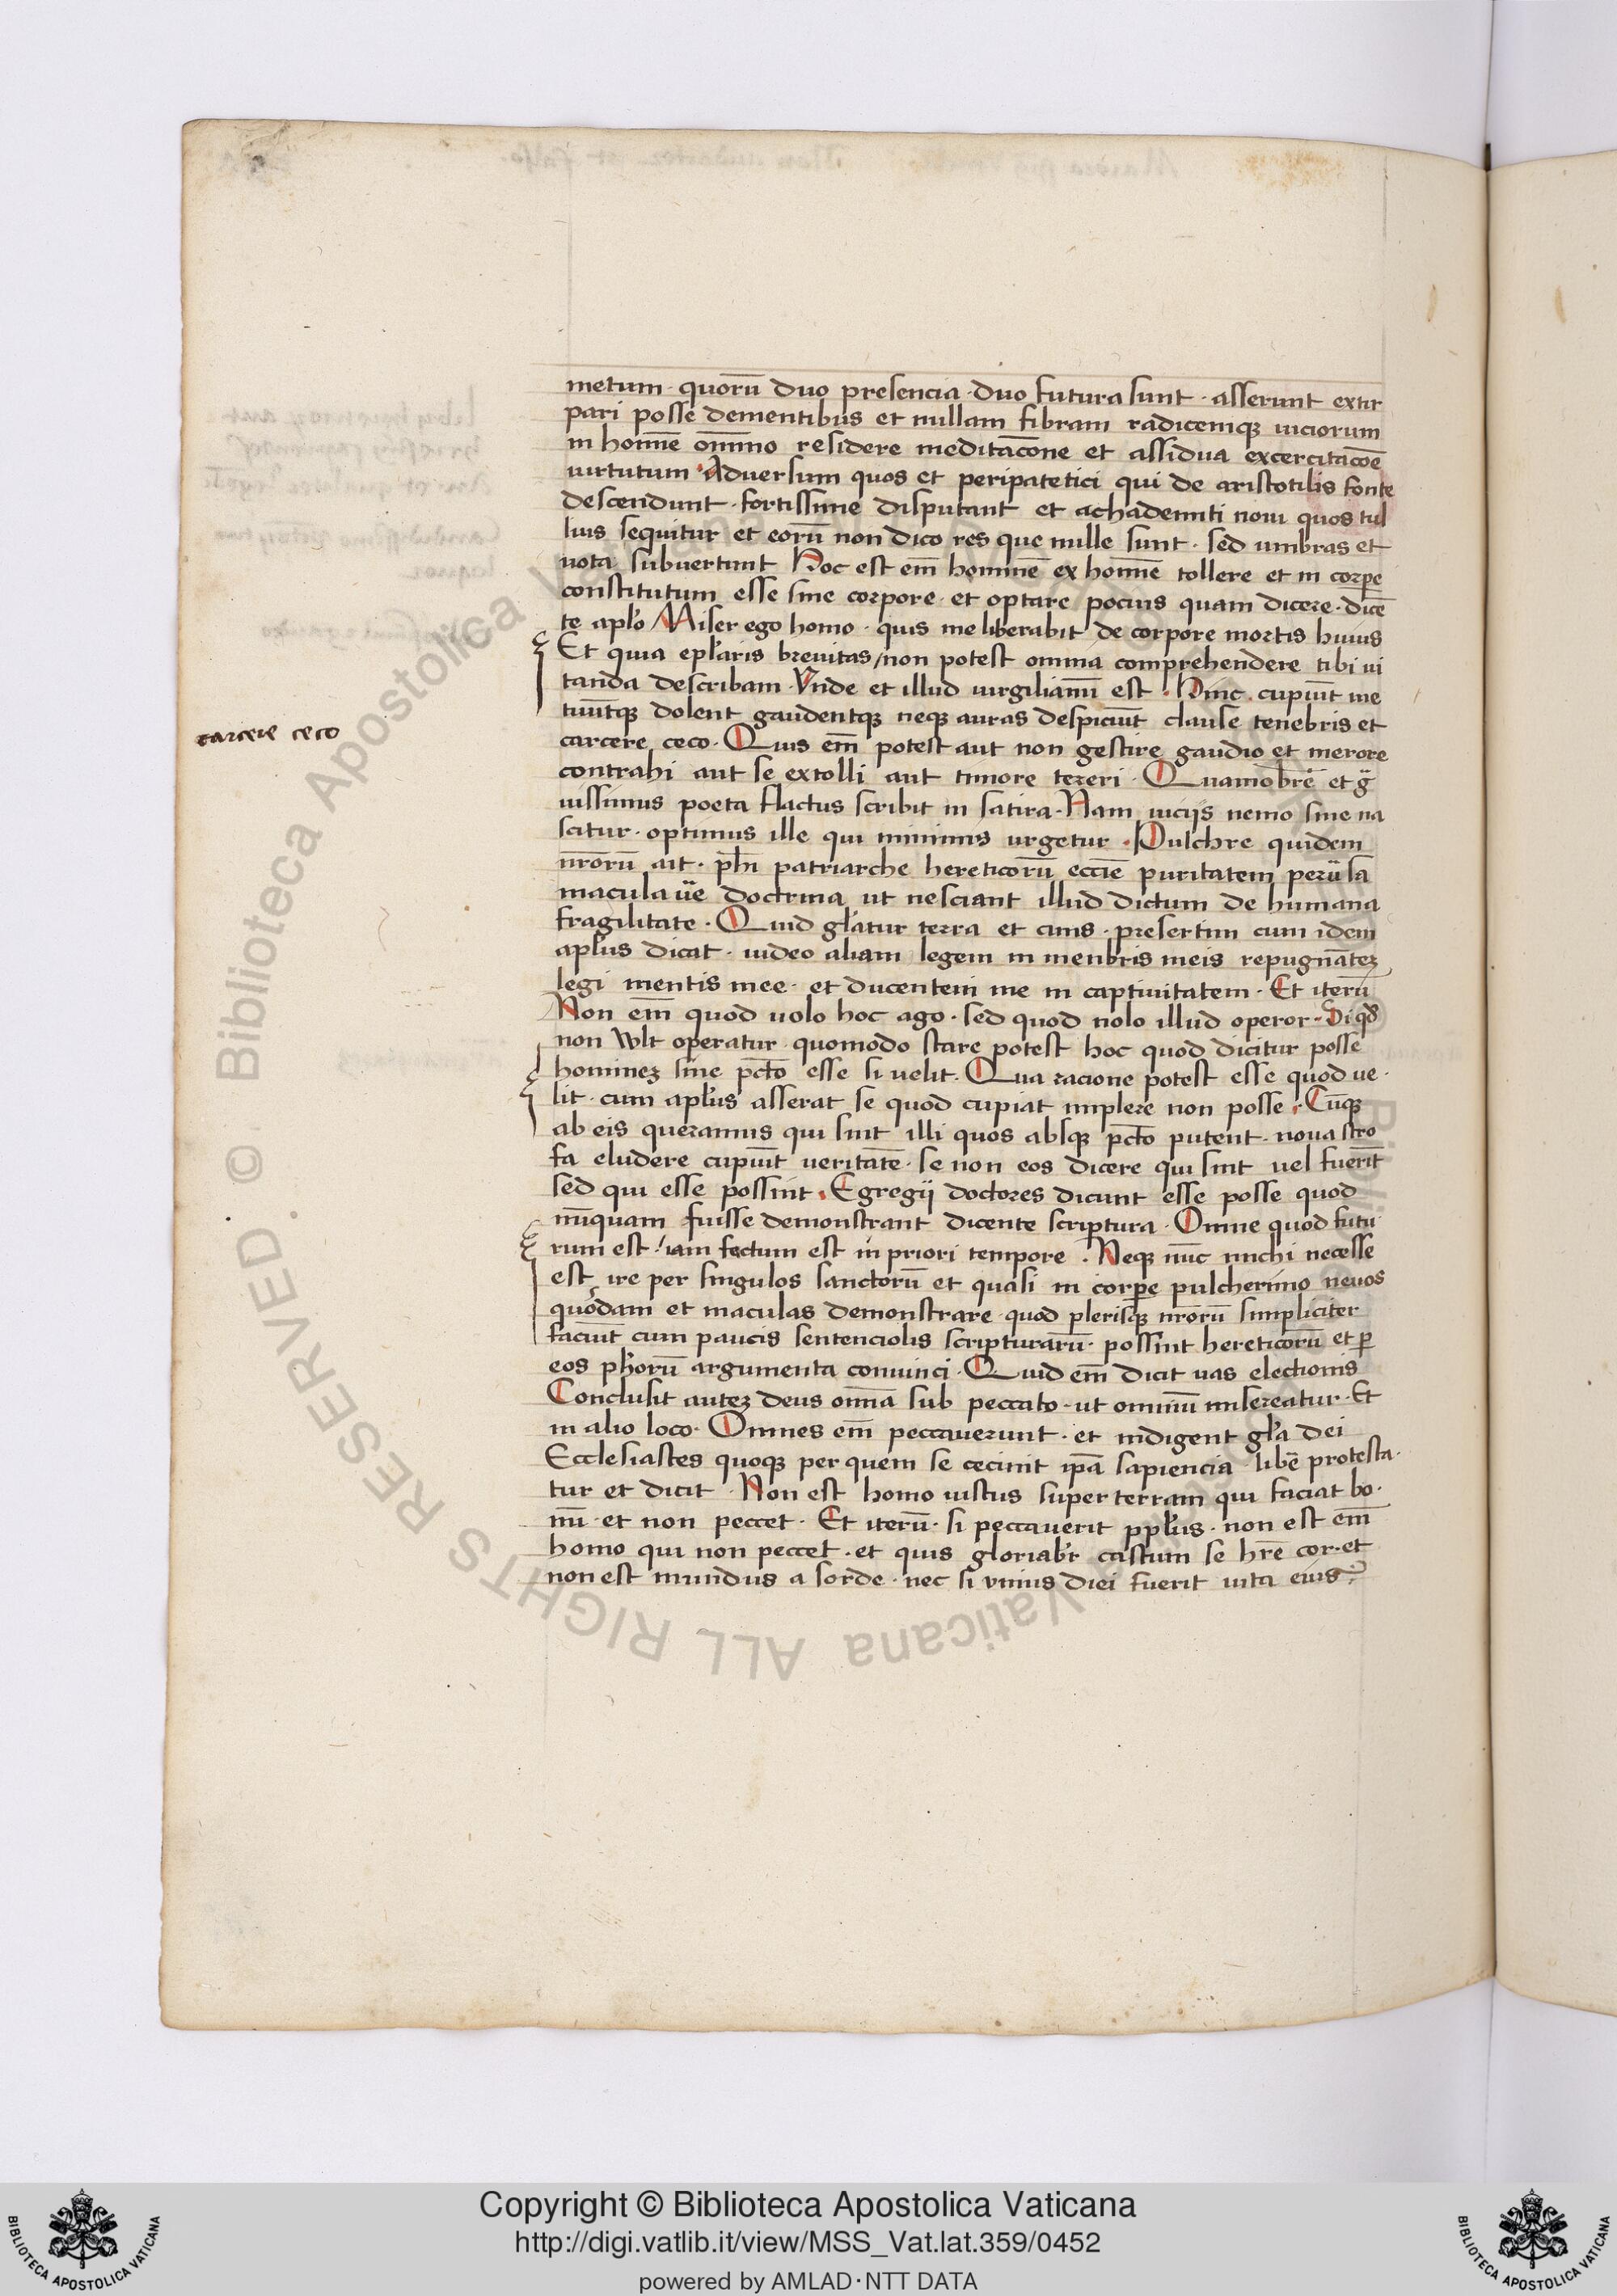 metum · quorū duo presencia · duo futura sunt · asserunt extir
pari posse dementibus et nullam fibram radicemqꝫ viciorum
in homīe om̄ino residere meditac̄one et assidua excercitac̄oe
virtutum · Adversum quos et peripatetici qui de aristotilis fonte
descendunt · fortissime disputant et achademiti novi quos tul
lius sequitur et eorū non dico res que nulle sunt · sed umbras et
vota subvertunt Hoc est em̄ hominē ex homīe tollere et in corꝑe
constitutum esse sine corpore · et optare pocius quam dicere · dicē
te aplo̓ Miser ego homo · quis me liberabit de corpore mortis huius
Et quia epl̓aris brevitas / non potest omnia comprehendere tibi vi
tanda describam · Unde et illud virgilianū est · Hinc cupiūt me
tuūtqꝫ dolent gaudentqꝫ neqꝫ auras despiciūt clause tenebris et
carcere ceco
carcere ceco · Quis em̄ potest aut non gestire gaudio et merore
contrahi aut se extolli aut timore tereri · Quamobrē et gͣ
vissimus poeta flactus scribit in satira · Nam vicijs nemo sine na
scitur · optimus ille qui minimis urgetur · Pulchre quidem
nr̄orū ait · ph̄i patriarche hereticorū eccīe puritatem perūsa
macula vͣe doctrina ut nesciant illud dictum de humana
fragilitate · Quid gl̓atur terra et cinis · presertim cum idem
apl̓us dicat · video aliam legem in menbris meis repugnāteꝫ
legi mentis mee · et ducentem me in captivitatem · Et iterū
Non em̄ quod volo hoc ago · sed quod nolo illud operor · Si qd̓
non wlt operatur quomodo stare potest hoc quod dicitur posse
homineꝫ sine pctō esse si velit · Qua racione potest esse quod ve ·
lit · cum apl̓us asserat se quod cupiat implere non posse · Cūqꝫ
ab eis queramus qui sint illi quos absqꝫ pctō putent · nova stro
fa eludere cupiūt veritatē · se non eos dicere qui sint vel fuerīt
sed qui esse possint · Egregij doctores dicunt esse posse quod
nūquam fuisse demonstrant dicente scriptura · Omne quod futu
rum est / iam factum est in priori tempore · Neqꝫ nūc michi necesse
est ire per singulos sanctorū et quasi in corꝑe pulcherimo nevos
quosdam et maculas demonstrare · quod plerisqꝫ nr̄orū simpliciter
faciūt cum paucis sentenciolis scripturarū · possint hereticorū et ꝑ
eos ph̓orū argumenta convinci · Quid em̄ dicit vas electionis
Conclusit auteꝫ deus om̄ia sub peccato · ut omniū misereatur · Et
in alio loco · Omnes em̄ peccaverunt · et indigent gl̓a dei
Ecclesiastes quoqꝫ per quem se cecinit ip̄a sapiencia libē protesta ·
tur et dicit · Non est homo iustus super terram qui faciat bo ·
nū · et non peccet · Et iterū · si peccaverit ppl̓us · non est em̄
homo qui non peccet · et quis gloriabr̓ castum se hr̄e cor · et
non est mundus a sorde · nec si unius diei fuerit vita eius
Copyright © Biblioteca Apostolica Vaticana
http://digi.vatlib.it/view/MSS_Vat.lat.359/0452
powered by AMLAD·NTT DATA
BIBLIOTECA APOSTOLICA VATICANA
BIBLIOTECA APOSTOLICA VATICANA